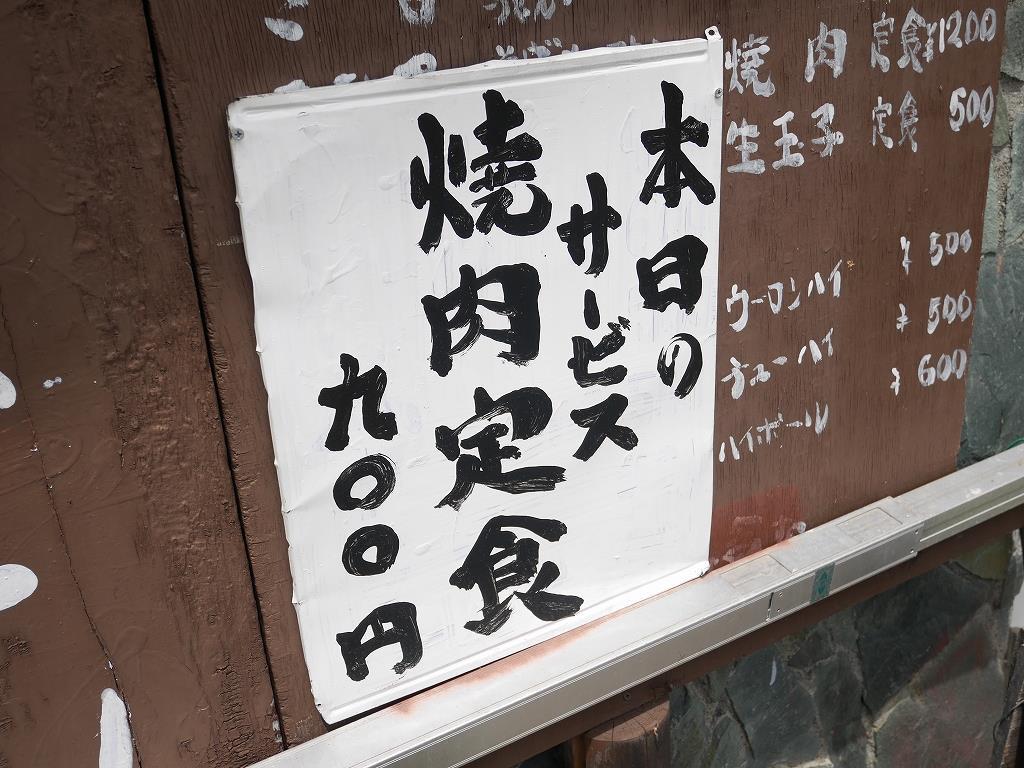 本日の
サービス
焼肉定食
九〇〇円
焼肉 定食 ¥1200
生玉子 定食 500
ウーロンハイ ¥500
チューハイ ¥500
ハイボール ¥600